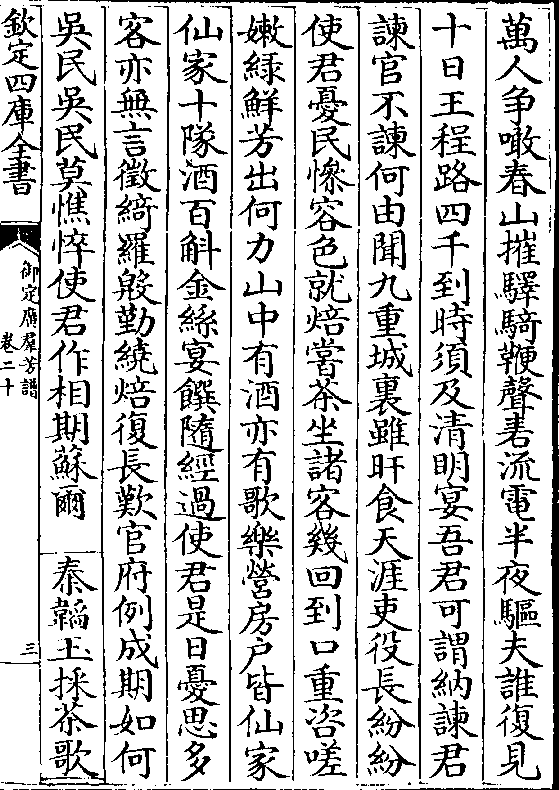 萬人争噉春山摧驛騎鞭聲砉流電半夜驅夫誰復見
十日王程路四千到時須及清明宴吾君可謂納諫君
諫官不諫何由聞九重城裏雖旰食天涯吏役長紛紛
使君憂民慘容色就焙嘗茶坐諸客幾回到口重咨嗟
嫩緑鮮芳出何力山中有酒亦有歌樂營房户皆仙家
仙家十隊酒百斛金絲宴饌隨經過使君是日憂思多
客亦無言徵綺羅殷勤繞焙復長歎官府例成期如何
吳民吳民莫憔悴使君作相期蘇爾 秦韜玉採茶歌
欽定四庫全書
御定廣羣芳譜
卷二十
三